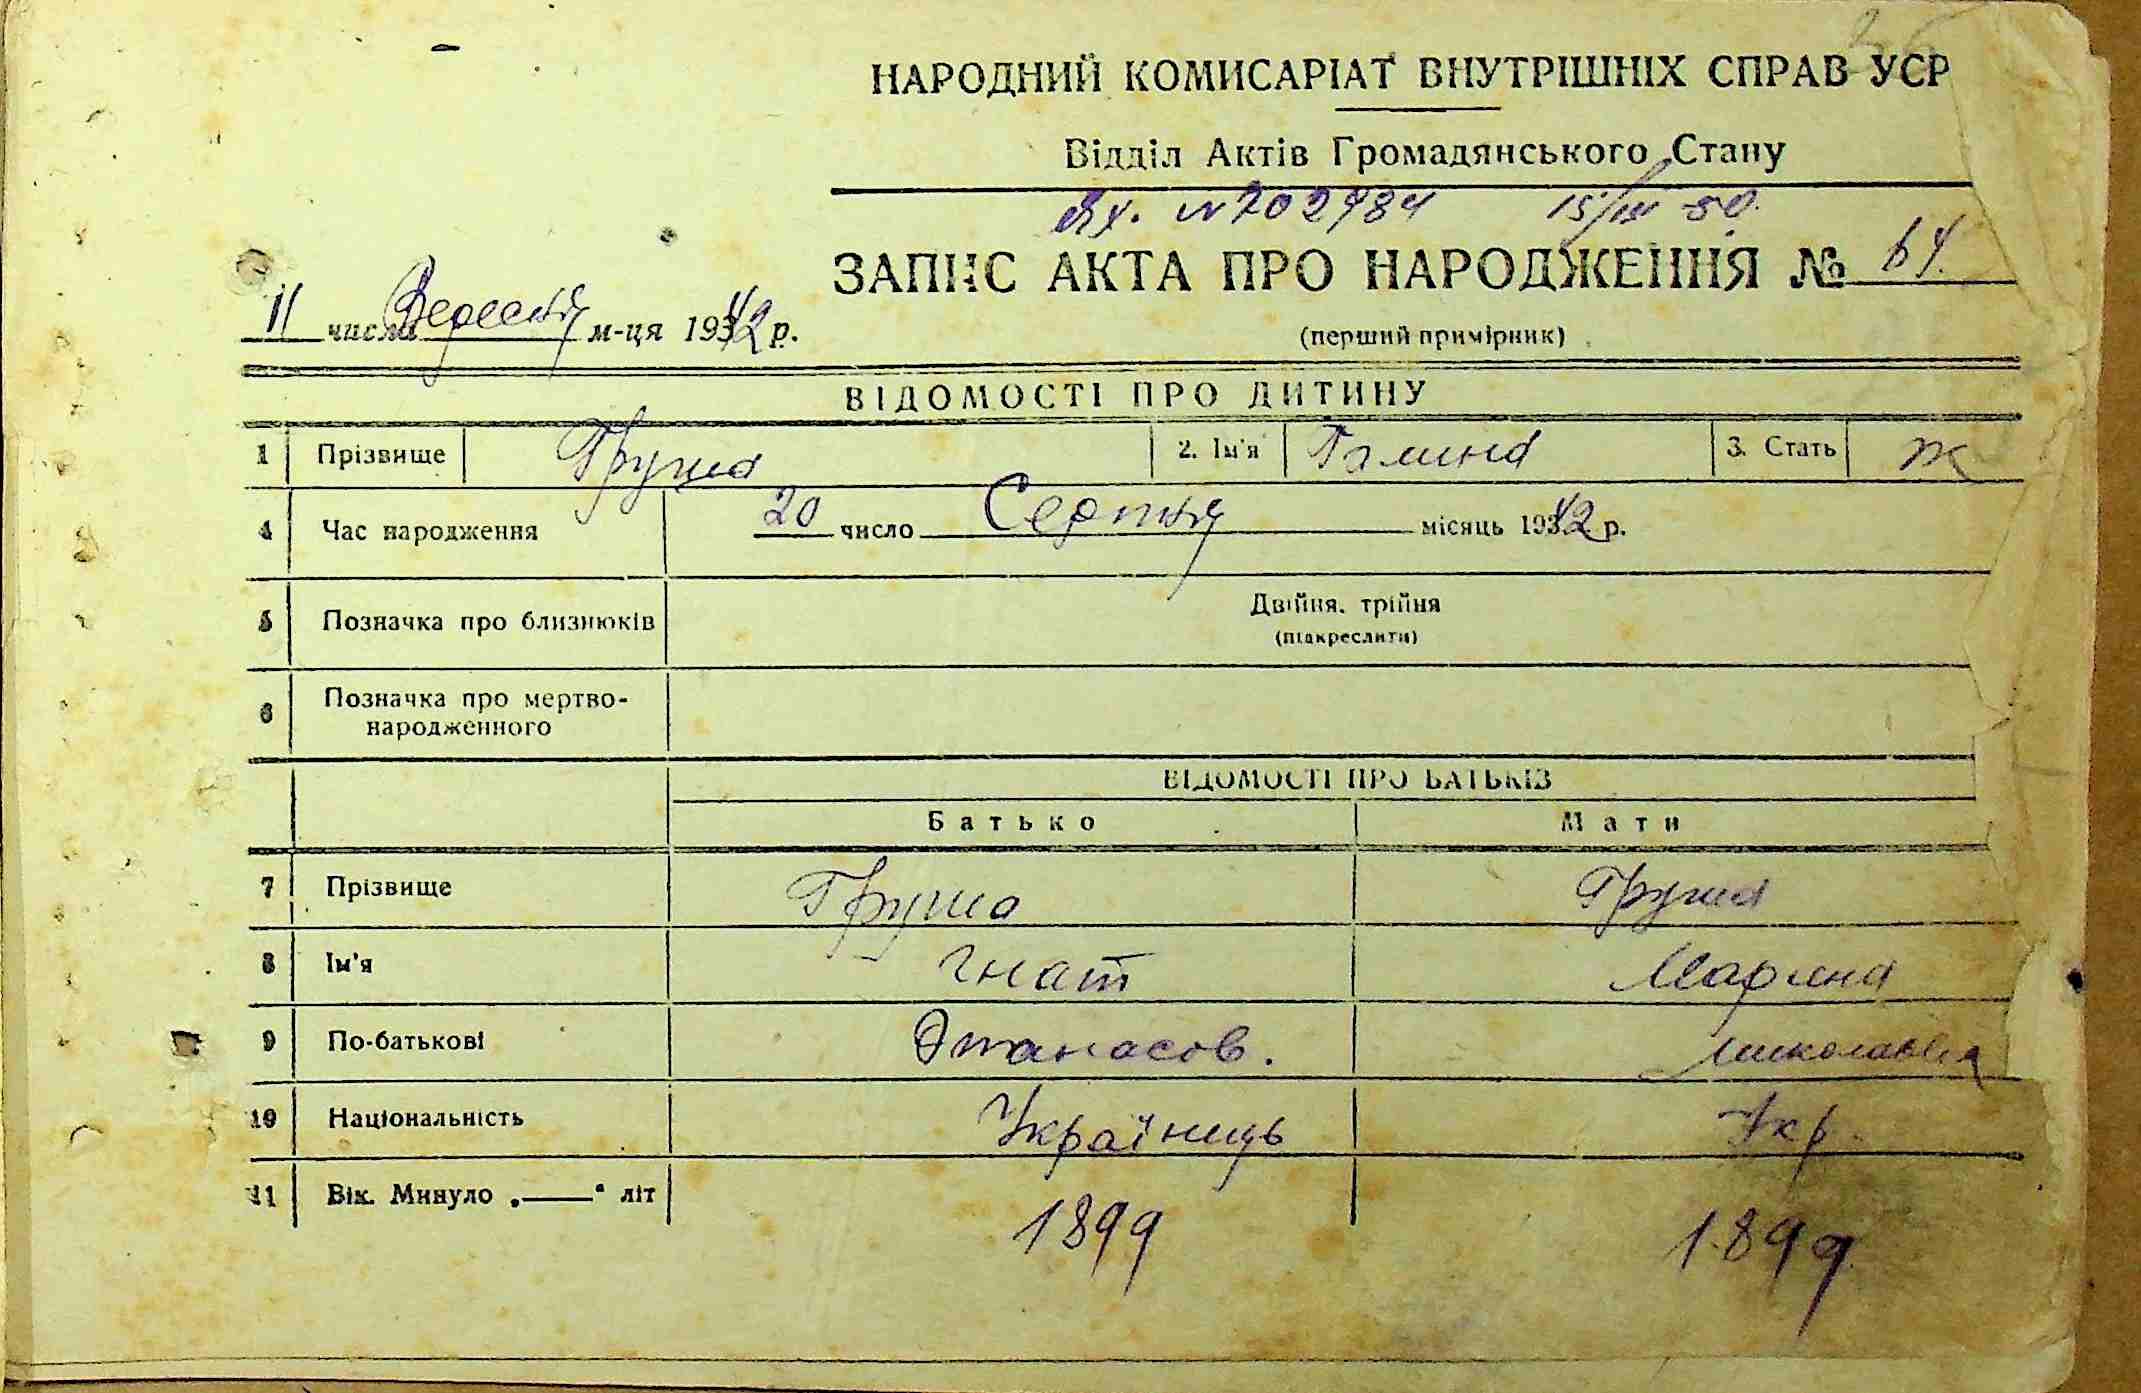 НАРОДНИЙ КОМИСАРІАТ ВНУТРІШНІХ СПРАВ УСР
Відділ Актів Громадянського Стану
№ 202784 15/III 50.
ЗАПИС АКТА ПРО НАРОДЖЕННЯ № 64.
11 числа Вересня м-ця 1942 р.
(перший примірник)
ВІДОМОСТІ ПРО ДИТИНУ
1 Прізвище Груша 2. Ім'я Галина 3. Стать Ж
4 Час народження 20 число Серпня місяць 1942 р.
5 Позначка про близнюків Двійня, трійня
(підкреслити)
6 Позначка про мертво-
народженного
ВІДОМОСТІ ПРО БАТЬКІВ
Батько Мати
7 Прізвище Груша Груша
8 Ім'я Гнат Марина
9 По-батькові Опанасов. Миколаївна
10 Національність Українець Укр.
11 Вік. Минуло „——“ літ 1899 1899